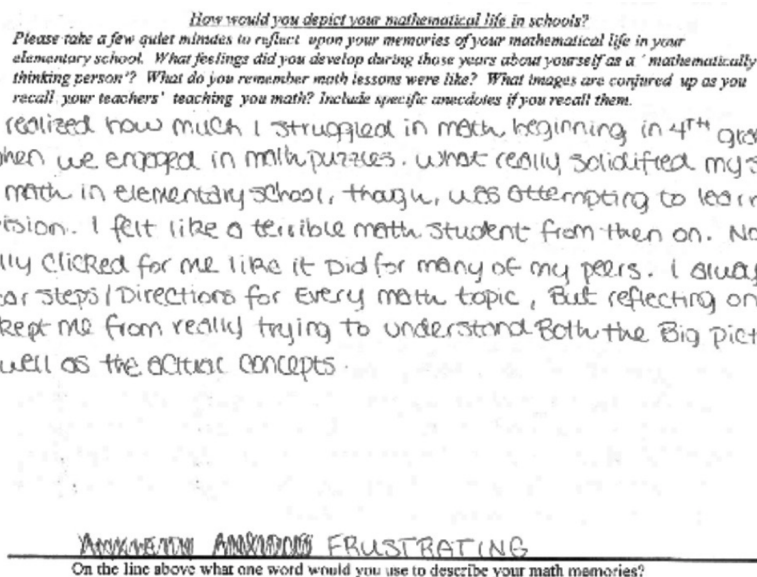 How would you depict your mathematical life in schools?
Please take a few quiet minutes to reflect upon your memories of your mathematical life in your
elementary school. What feelings did you develop during those years about yourself as a 'mathematically
thinking person'? What do you remember math lessons were like? What images are conjured up as you
recall your teachers' teaching you math? Include specific anecdotes if you recall them.
realized how much I struggled in math beginning in 4TH
when we engaged in math puzzles. What really solidified my
math in elementary school, though, was attempting to learn
I felt like a terrible math student from then on.
clicked for me like it Did for many of my peers. I
steps/Directions for Every math topic, But reflecting on
kept me from really trying to understand Both the Big
well as the actual concepts.
FRUSTRATING
On the line above what one word would you use to describe your math memories?